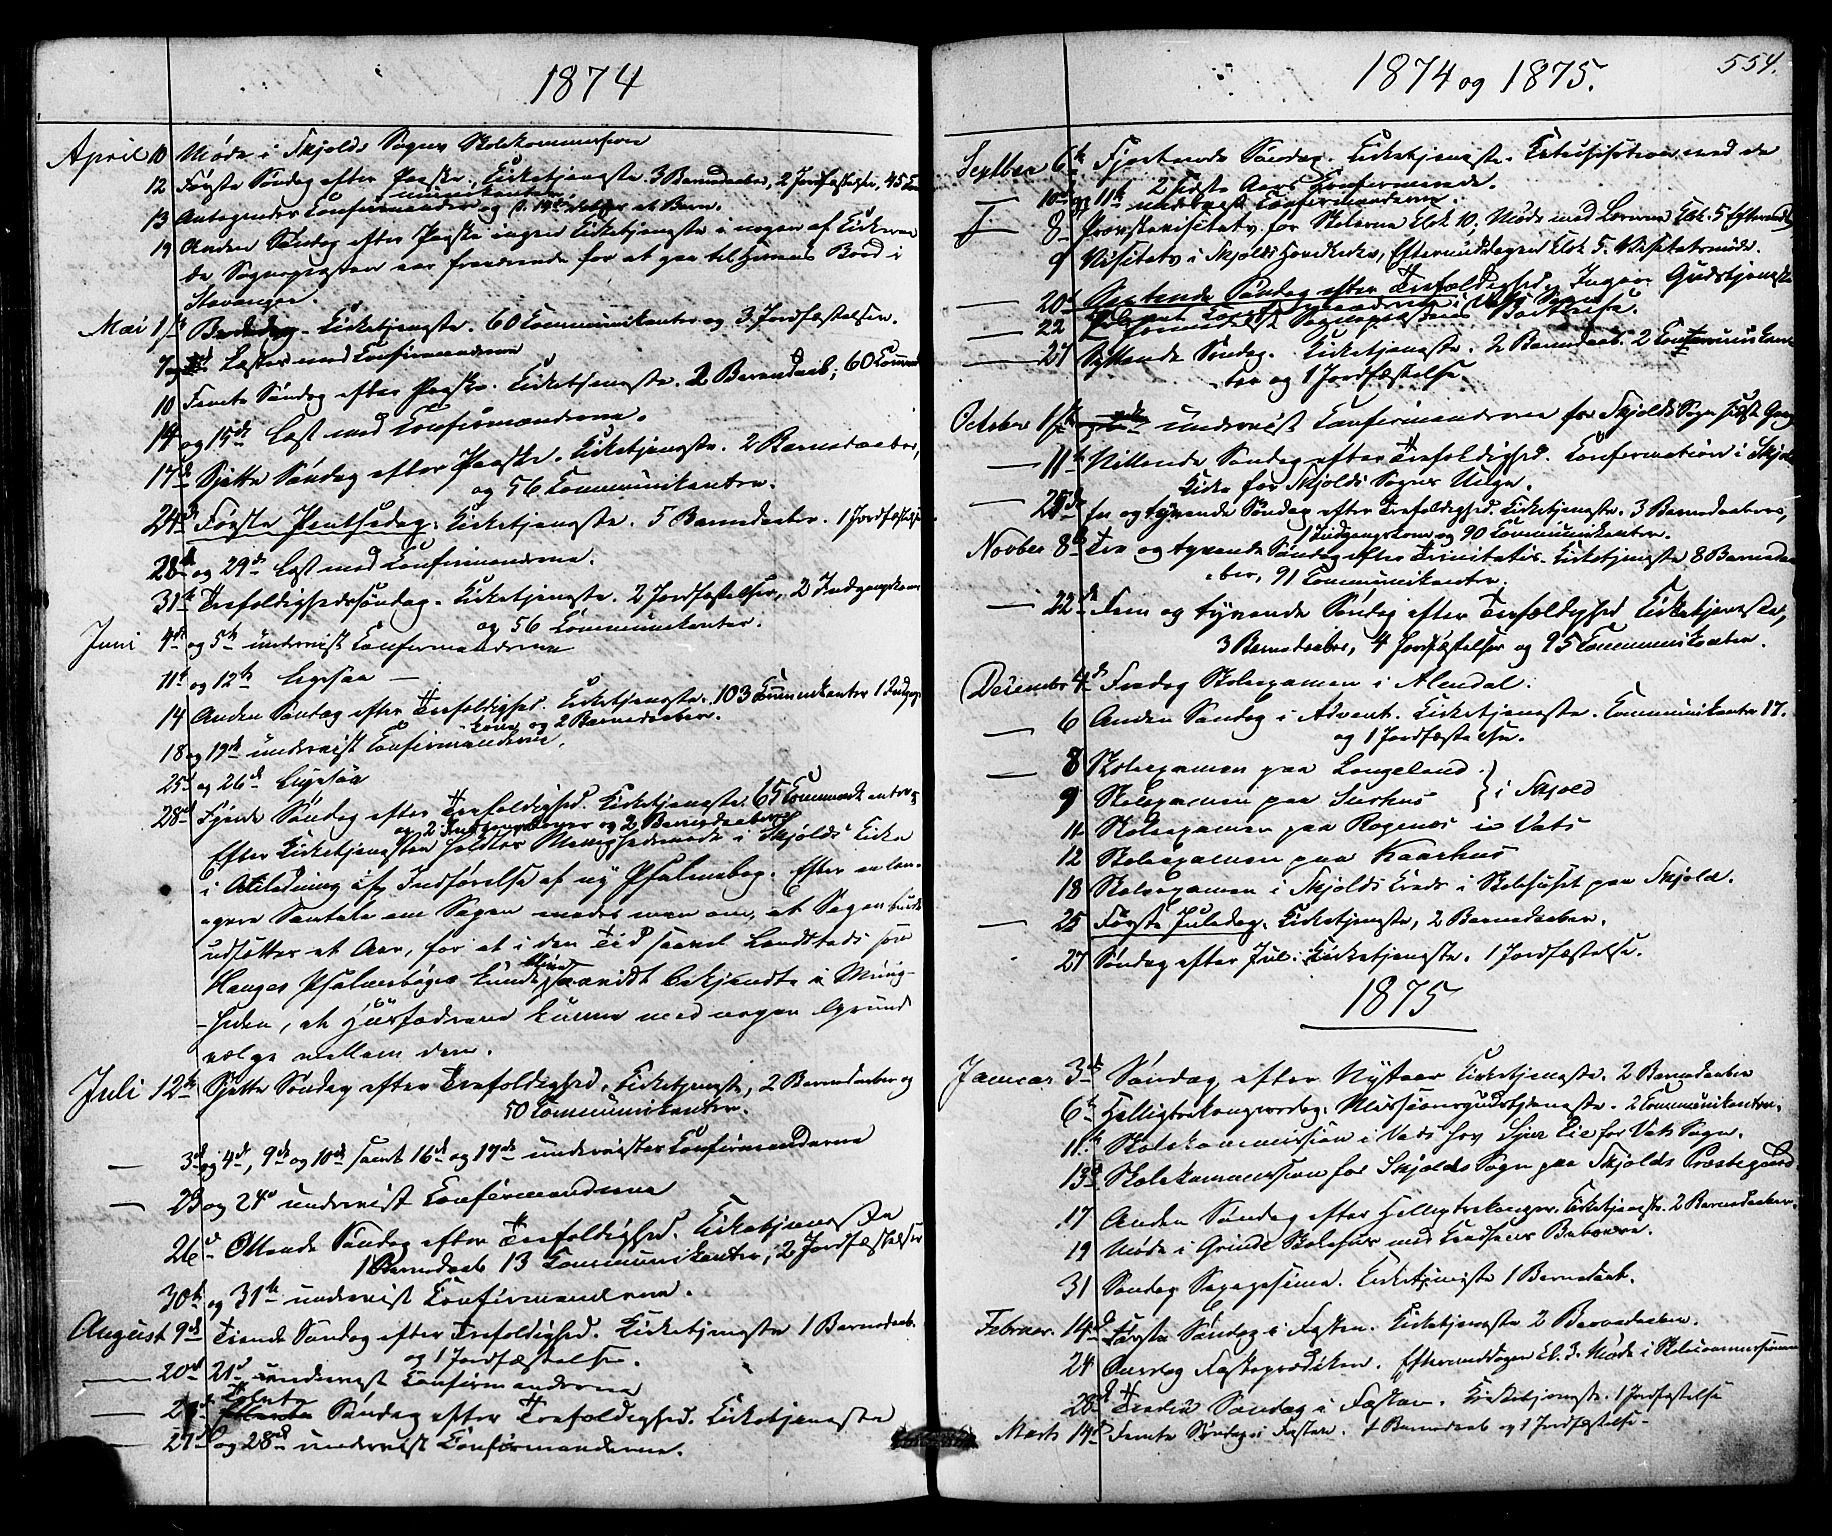 1874
April 10 Møde i Skjolds Sogns Skolekommission
12 Første Søndag efter Paaske, Kirketjeneste 3 Barnedaaber, 2 Jordfæstelser, 45 Com-
munikanter
13 Antegnedes Confirmander og
19 Anden Søndag efter Paaske ingen Kirketjeneste i nogen af Kirkerne
da Sognepræsten var fraværende for at gaa til Herrens Bord i
Stavanger.
Mai 1ste Bededag. Kirketjeneste. 60 Communikanter og 3 Jordfæstelser.
7 og Læst med Confirmanderne
10 Femte Søndag efter Paaske. Kirketjeneste. 2 Barnedaab; 60 Commu
14 og 15de Læst med Confirmanderne.
17de Sjette Søndag efter Paaske. Kirketjeneste. 2 Barnedaaber,
og 56 Communikanter.
24de Første Pintsedag. Kirketjeneste. 5 Barnedaaber. 1 Jordfæstelse
28de og 29de Læst med Confirmanderne.
31te Trefoldighedssøndag. Kirketjeneste. 2 Jordfæstelser, 2 Indgangskoner
og 56 Communikanter.
Juni 4de og 5te undervist Confirmanderne
11te og 12te Ligesaa —
14 Anden Søndag efter Trefoldighed. Kirketjeneste. 103 Communikanter 1 Indgangs-
kone og 2 Barnedaaber.
18 og 19de undervist Confirmanderne.
25de og 26de Ligesaa
28de Fjerde Søndag efter Trefoldighed. Kirketjeneste. 65 Communikanter
og 2 Indgangskoner og 2 Barnedaaber
Efter Kirketjenesten holdtes Menighedsmøde i Skjolds Kirke
i Anledning af Indførelse af ny Psalmebog. Efter en læn-
gere Samtale om Sagen enedes man om, at Sagen burde
udsættes et Aar, for at i den Tid saavel Landstads som
Hauges Psalmebøger kunde blive saavidt bekjendte i Menig-
heden, at Husfædrene kunne med nogen Grund
vælge mellem dem.
Juli 12te Sjette Søndag efter Trefoldighed. Kirketjeneste, 2 Barnedaaber og
50 Communikanter.
— 3de og 4de, 9de og 10de samt 16de og 17de undervistes Confirmanderne
— 23 og 24de undervist Confirmanderne
26de Ottende Søndag efter Trefoldighed. Kirketjeneste
1 Barnedaab 13 Communikanter, 2 Jordfæstelser
30te og 31te undervist Confirmanderne.
August 9de Tiende Søndag efter Trefoldighed. Kirketjeneste 1 Barnedaab.
og 1 Jordfæstelse.
— 20de 21de undervist Confirmanderne
Tolvte
— Søndag efter Trefoldighed. Kirketjeneste
— 27de og 28de undervist Confirmanderne.
1874 og 1875.
554.
Septber 6te Fjortende Søndag. Kirketjeneste. Katechisation med de
2 sidste Aars Confirmerede.
— 10de og 11te undervist Confirmanderne.
8 Provstevisitats for Skolerne Klok 10; Møde med Lærerne Klk. 5 Efterm
9 Visitats i Skjolds Hovedkirke, Eftermiddagen Klok 5. Visitatsmøde.
— 20de Sextende Søndag efter Trefoldighed. Ingen Gudstjeneste
— 22
— 27 Syttende Søndag. Kirketjeneste. 2 Barnedaab. 2 Communikan-
ter og 1 Jordfæstelse.
October 1ste undervist Confirmanderne for Skjolds Sogn sidste Gang
— 11te Nittende Søndag efter Trefoldighed. Confirmation i Skjold
Kirke for Skjolds Sogns Unge.
— 25de En og tyvende Søndag efter Trefoldighed. Kirketjeneste. 3 Barnedaaber,
1 Indgangskone og 90 Communikanter.
Novber 8de Tre og tyvende Søndag efter Trinitatis. Kirketjeneste 8 Barneda-
aber, 91 Communikanter.
— 22de Fem og tyvende Søndag efter Trefoldighed Kirketjeneste,
3 Barnedaaber, 4 Jordfæstelser og 95 Communikanter.
December 4de Fredag Skoleexamen i Alendal.
— 6 Anden Søndag i Advent. Kirketjeneste. Communikanter 17.
og 1 Jordfæstelse.
— 8 Skoleexamen paa Langeland
9 Skoleexamen paa } i Skjold
11 Skoleexamen paa Ragenæs i Vats
12 Skoleexamen paa Kaarhus
18 Skoleexamen i Skjolds Kreds i Skolehuset paa Skjold.
— 25 Første Juledag. Kirketjeneste, 2 Barnedaaber.
27 Søndag efter Jul. Kirketjeneste. 1 Jordfæstelse.
1875
Januar 3de Søndag efter Nytaar Kirketjeneste. 2 Barnedaaber
6te Helligtrekongersdag. Missionsgudstjeneste. 2 Communikanter.
11te Skolekommission i Vats hos for Vats Sogn.
13de Skolekommission for Skjolds Sogn paa Skjolds Præstegaard
17 Anden Søndag efter Helligtrekonger. Kirketjeneste. 2 Barnedaaber.
19 Møde i Grinde Skolehus med Kredsens Beboere.
31 Søndag Sexagesima. Kirketjeneste 1 Barnedaab.
Februar. 14de Første Søndag i Fasten. Kirketjeneste 2 Barnedaaber.
24 Onsdag Fasteprædiken. Eftermiddagen Kl. 3. Møde i Skolecommissionen
28de Tredie Søndag i Fasten. Kirketjeneste. 1 Jordfæstelse
Marts 14de Femte Søndag i Fasten. 4 Barnedaab og 1 Jordfæstelse.